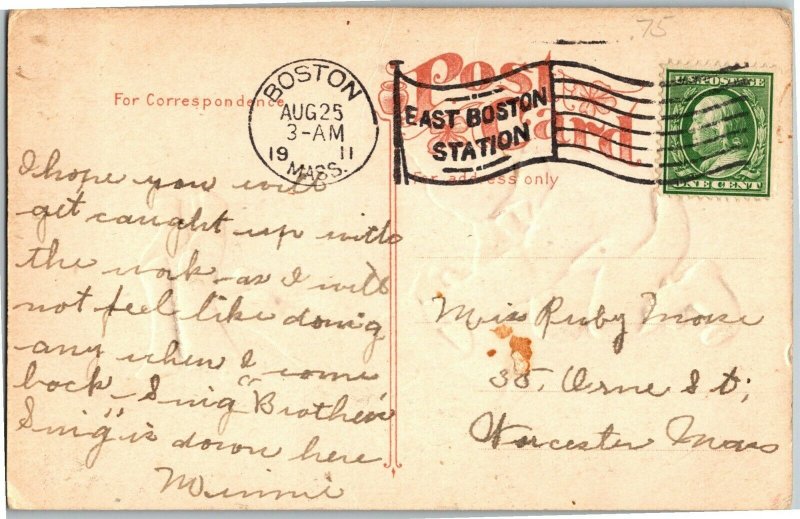 .75
Post
Card.
For Correspondence
For address only
BOSTON
AUG 25
3-AM
19 11
MASS.
EAST BOSTON
STATION
U.S. POSTAGE
ONE CENT
I hope you will
get caught up with
the work as I will
not feel like doing
any when I come
back - Sing "Brother
Sing" is down here
Minnie
Miss Ruby Morse
35, Orne St;
Worcester Mass